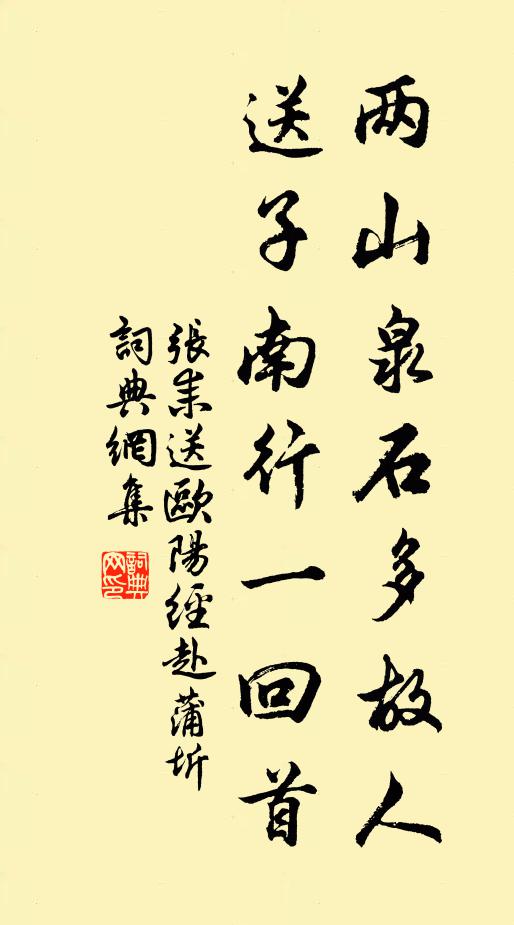 两山泉石多故人
送子南行一回首
張耒送歐陽經赴蒲圻
詞典網集
詞典
网印